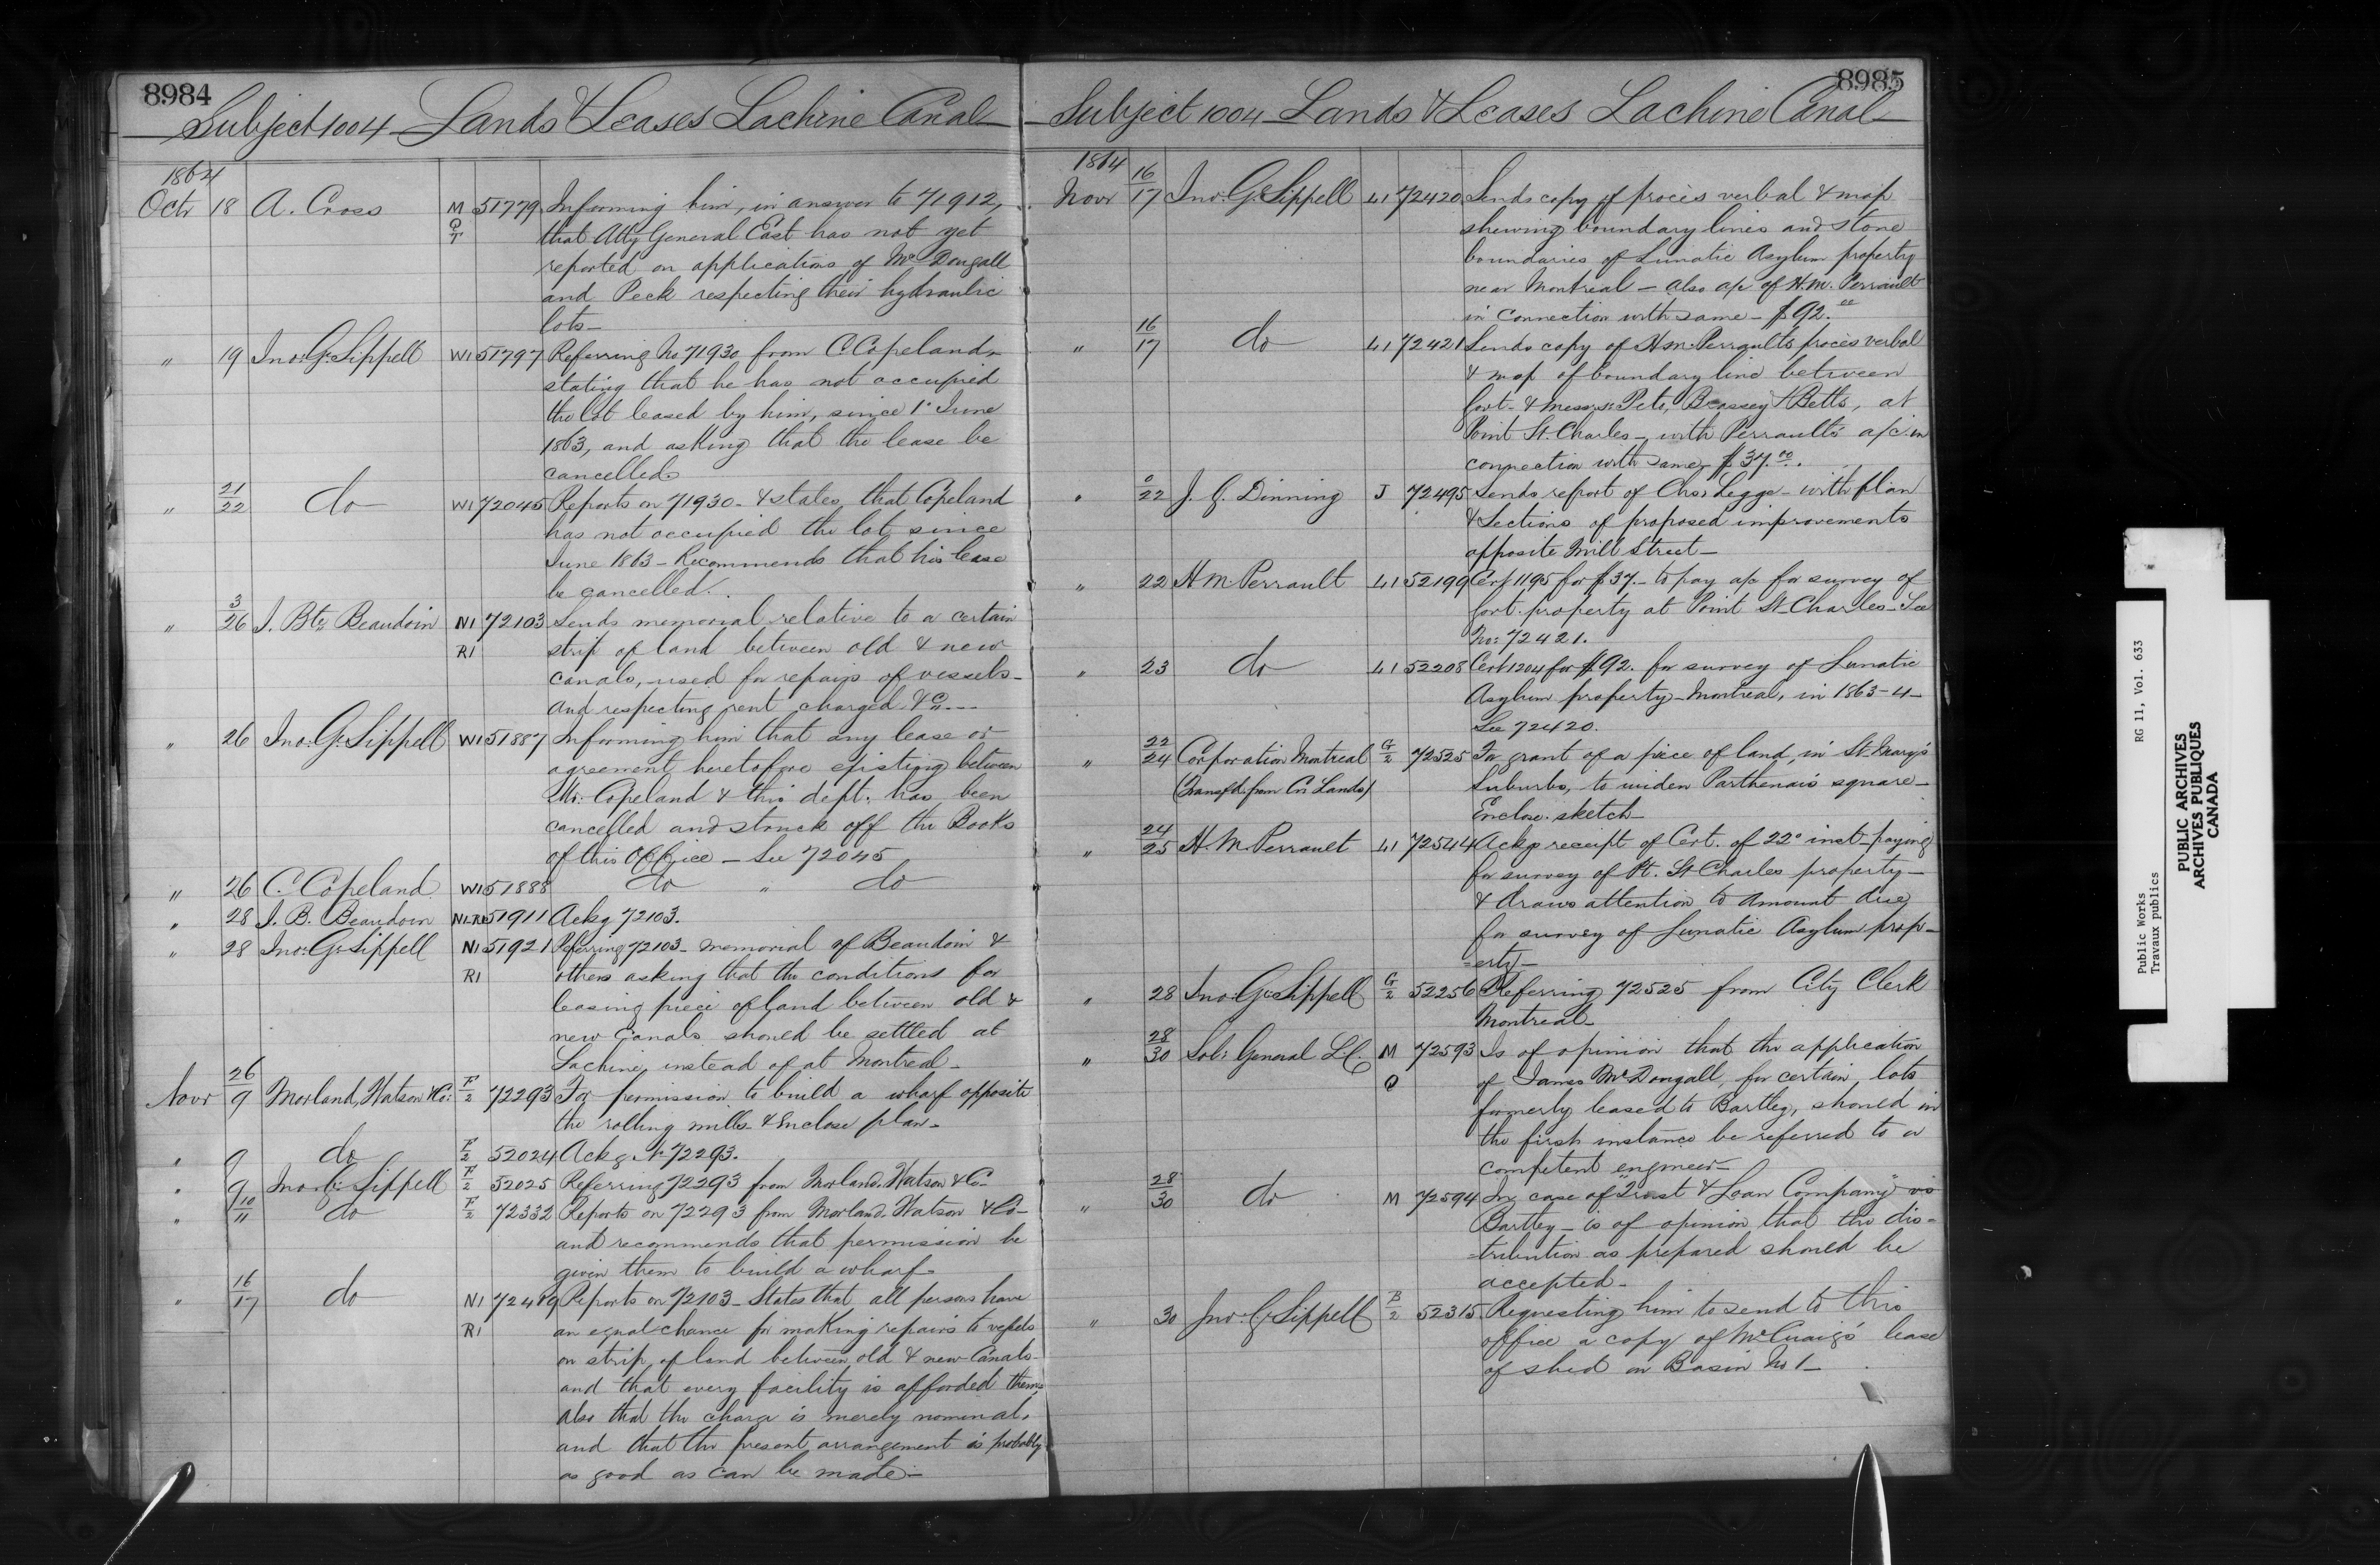 8984
Subject 1004 Lands & Leases Lachine Canal
1864
Octr 18 A. Cross M O T 51779 Informing him, in answer to 71912,
that Atty General East has not yet
reported on applications of McDougall
and Peck respecting their hydraulic
lots—
" 19 Jno. G. Sippell W1 51797 Referring No 71930 from C. Copeland
stating that he has not occupied
the lot leased by him, since 1st June
1863, and asking that the lease be
cancelled
" 21/22 do W1 72045 Reports on 71930 - & states that Copeland
has not occupied the lot since
June 1863 - Recommends that his lease
be cancelled.
" 3/26 J. Bte Beaudoin N1 R1 72103 Sends memorial relative to a certain
strip of land between old & new
canals, used for repairs of vessels -
and respecting rent charged &c
" 26 Jno. G. Sippell W1 51887 Informing him that any lease or
agreement heretofore existing between
Mr. Copeland & this dept. has been
cancelled and struck off the Books
of this Office - See 72045
" 26 C. Copeland W1 51888 do " do
" 28 J. B. Beaudoin N1 R1 51911 Ackg 72103.
" 28 Jno. G. Sippell N1 R1 51921 Referring 72103 - memorial of Beaudoin &
others asking that the conditions for
leasing piece of land between old &
new Canals should be settled at
Lachine instead of at Montreal -
Novr 26/9 Morland, Watson & Co: F/2 72293 For permission to build a wharf opposite
the rolling mills - & Enclose plan -
" 9 do F/2 52024 Ackg. No 72293.
" 9 Jno. G. Sippell F/2 52025 Referring 72293 from Morland, Watson & Co -
" 10/11 do F/2 72332 Reports on 72293 from Morland, Watson & Co -
and recommends that permission be
given them to build a wharf -
" 16/17 do N1 R1 72419 Reports on 72103 - States that all persons have
an equal chance for making repairs to vessels
on strip of land between old & new Canals -
and that every facility is afforded them,
also that the charge is merely nominal,
and that the present arrangement is probably
as good as can be made -
8985
Subject 1004 Lands & Leases Lachine Canal
1864
Novr 16/17 Jno. G. Sippell L1 72420 Sends copy of procès verbal & map
shewing boundary lines and stone
boundaries of Lunatic Asylum property
near Montreal - also a/c of H.M. Perrault
in connection with same - $92.00
" 16/17 do L1 72421 Sends copy of H.M. Perrault's procès verbal
& map of boundary line between
Govt. & Messrs. Peto, Brassey & Betts, at
Point St. Charles - with Perrault's a/c in
connection with same - $37.00.
" 22 J. G. Dinning J 72495 Sends report of Chas. Legge - with plan
& Sections of proposed improvements
opposite Mill Street -
" 22 H M Perrault L1 52199 Cert 1195 for $37. - to pay a/c for survey of
Govt. property at Point St Charles - See
No: 72421.
" 23 do L1 52208 Cert 1204 for $92. for survey of Lunatic
Asylum property - Montreal, in 1863-4 -
See 72420.
" 22/24 Corporation Montreal G/2 72525 For grant of a piece of land, in St. Mary's
(Transfd. from Cn Lands)
Suburbs, to widen Parthenais square -
Enclose sketch -
" 24/25 H. M Perrault L1 72544 Ackg receipt of Cert. of 22d inst - paying
for survey of Pt. St Charles property -
& draws attention to amount due
for survey of Lunatic Asylum prop-
=erty -
" 28 Jno. G. Sippell G/2 52256 Referring 72525 from City Clerk
Montreal -
" 28/30 Sol: General L.C. M O 72593 Is of opinion that the application
of James McDougall, for certain lots
formerly leased to Bartley, should in
the first instance be referred to a
competent engineer -
" 28/30 do M 72594 In case of "Trust & Loan Company" vs
Bartley - is of opinion that the dis-
=tribution as prepared should be
accepted -
" 30 Jno. G. Sippell B/2 52315 Requesting him to send to this
office a copy of McCuaig's lease
of shed on Basin No 1 -
Public Works RG 11, Vol. 633
Travaux publics
PUBLIC ARCHIVES
ARCHIVES PUBLIQUES
CANADA